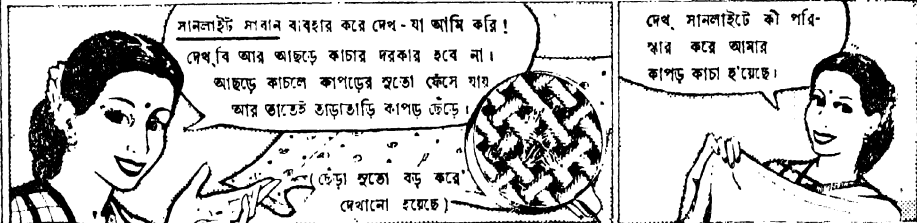 সানলাইট সাবান ব্যবহার করে দেখ - যা আমি করি !
দেখ্‌বি আর আছড়ে কাচার দরকার হবে না।
আছড়ে কাচলে কাপড়ের সুতো ফেঁসে যায়
আর তাতেই তাড়াতাড়ি কাপড় ছেঁড়ে।
(ছেঁড়া সুতো বড় করে
দেখানো হয়েছে)
দেখ্, সানলাইটে কী পরি-
ষ্কার করে আমার
কাপড় কাচা হ'য়েছে।